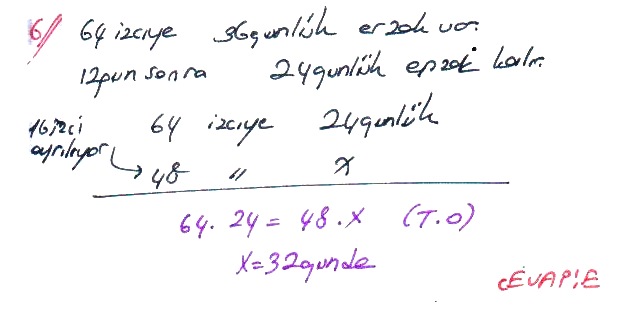 6/ 64 izciye 36 günlük erzak var.
12 gün sonra 24 günlük erzak kalır.
16 izci ayrılıyor
64 izciye 24 günlük
48 " x
64 . 24 = 48 . x (T.O)
x = 32 günde
CEVAP: E